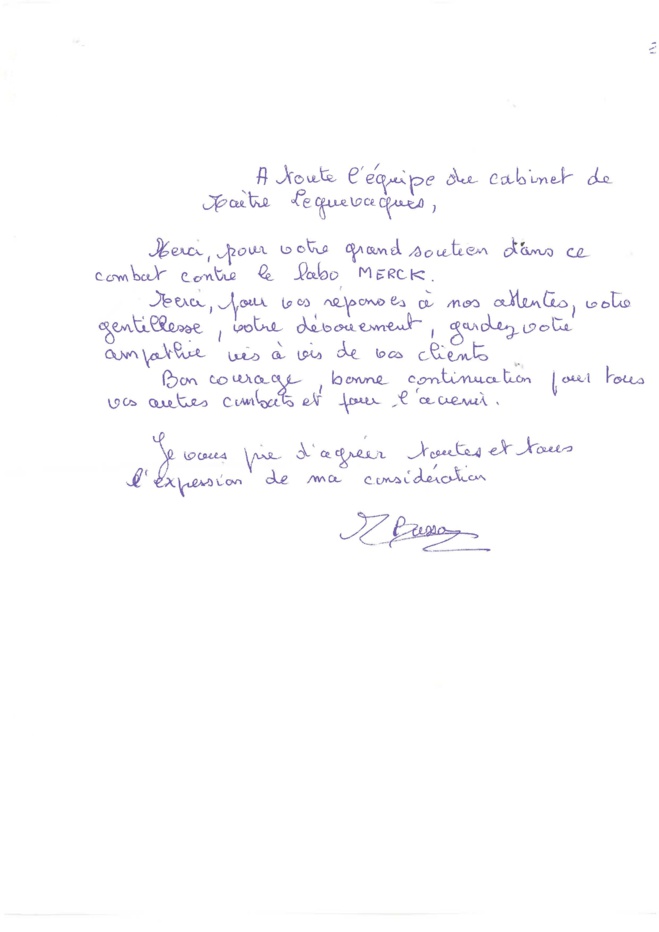 A toute l'équipe du cabinet de
Maître Leguevaques,
Merci, pour votre grand soutien dans ce
combat contre le labo MERCK.
Merci, pour vos réponses à nos attentes, votre
gentillesse, votre dévouement, gardez votre
ampathie vis à vis de vos clients
Bon courage, bonne continuation pour tous
vos autres combats et pour l'avenir.
Je vous prie d'agréer toutes et tous
l'expression de ma considération